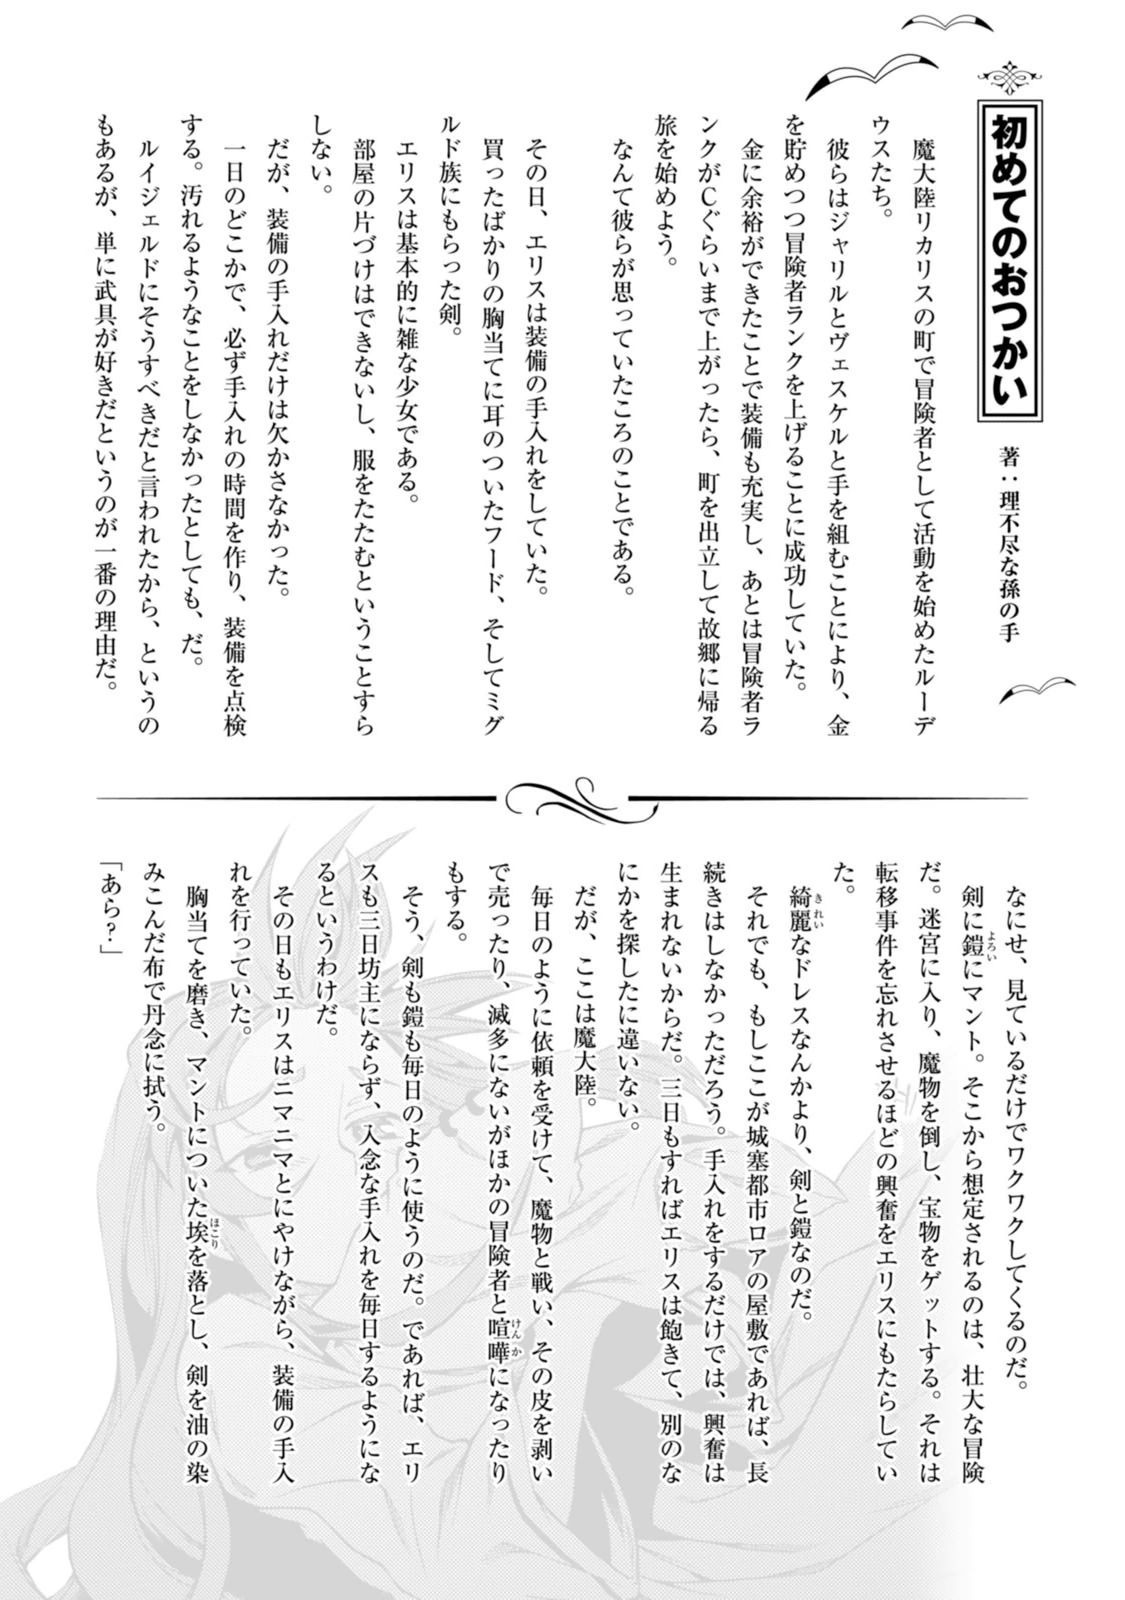 初めてのおつかい
著：理不尽な孫の手
魔大陸リカリスの町で冒険者として活動を始めたルーデ
ウスたち。
彼らはジャリルとヴェスケルと手を組むことにより、金
を貯めつつ冒険者ランクを上げることに成功していた。
金に余裕ができたことで装備も充実し、あとは冒険者ラ
ンクがCぐらいまで上がったら、町を出立して故郷に帰る
旅を始めよう。
なんて彼らが思っていたころのことである。
その日、エリスは装備の手入れをしていた。
買ったばかりの胸当てに耳のついたフード、そしてミグ
ルド族にもらった剣。
エリスは基本的に雑な少女である。
部屋の片づけはできないし、服をたたむということすら
しない。
だが、装備の手入れだけは欠かさなかった。
一日のどこかで、必ず手入れの時間を作り、装備を点検
する。汚れるようなことをしなかったとしても、だ。
ルイジェルドにそうすべきだと言われたから、というの
もあるが、単に武具が好きだというのが一番の理由だ。
なにせ、見ているだけでワクワクしてくるのだ。
剣に鎧にマント。そこから想定されるのは、壮大な冒険
だ。迷宮に入り、魔物を倒し、宝物をゲットする。それは
転移事件を忘れさせるほどの興奮をエリスにもたらしてい
た。
綺麗なドレスなんかより、剣と鎧なのだ。
それでも、もしここが城塞都市ロアの屋敷であれば、長
続きはしなかっただろう。手入れをするだけでは、興奮は
生まれないからだ。三日もすればエリスは飽きて、別のな
にかを探したに違いない。
だが、ここは魔大陸。
毎日のように依頼を受けて、魔物と戦い、その皮を剥い
で売ったり、滅多にないがほかの冒険者と喧嘩になったり
もする。
そう、剣も鎧も毎日のように使うのだ。であれば、エリ
スも三日坊主にならず、入念な手入れを毎日するようにな
るというわけだ。
その日もエリスはニマニマとにやけながら、装備の手入
れを行っていた。
胸当てを磨き、マントについた埃を落とし、剣を油の染
みこんだ布で丹念に拭う。
「あら？」